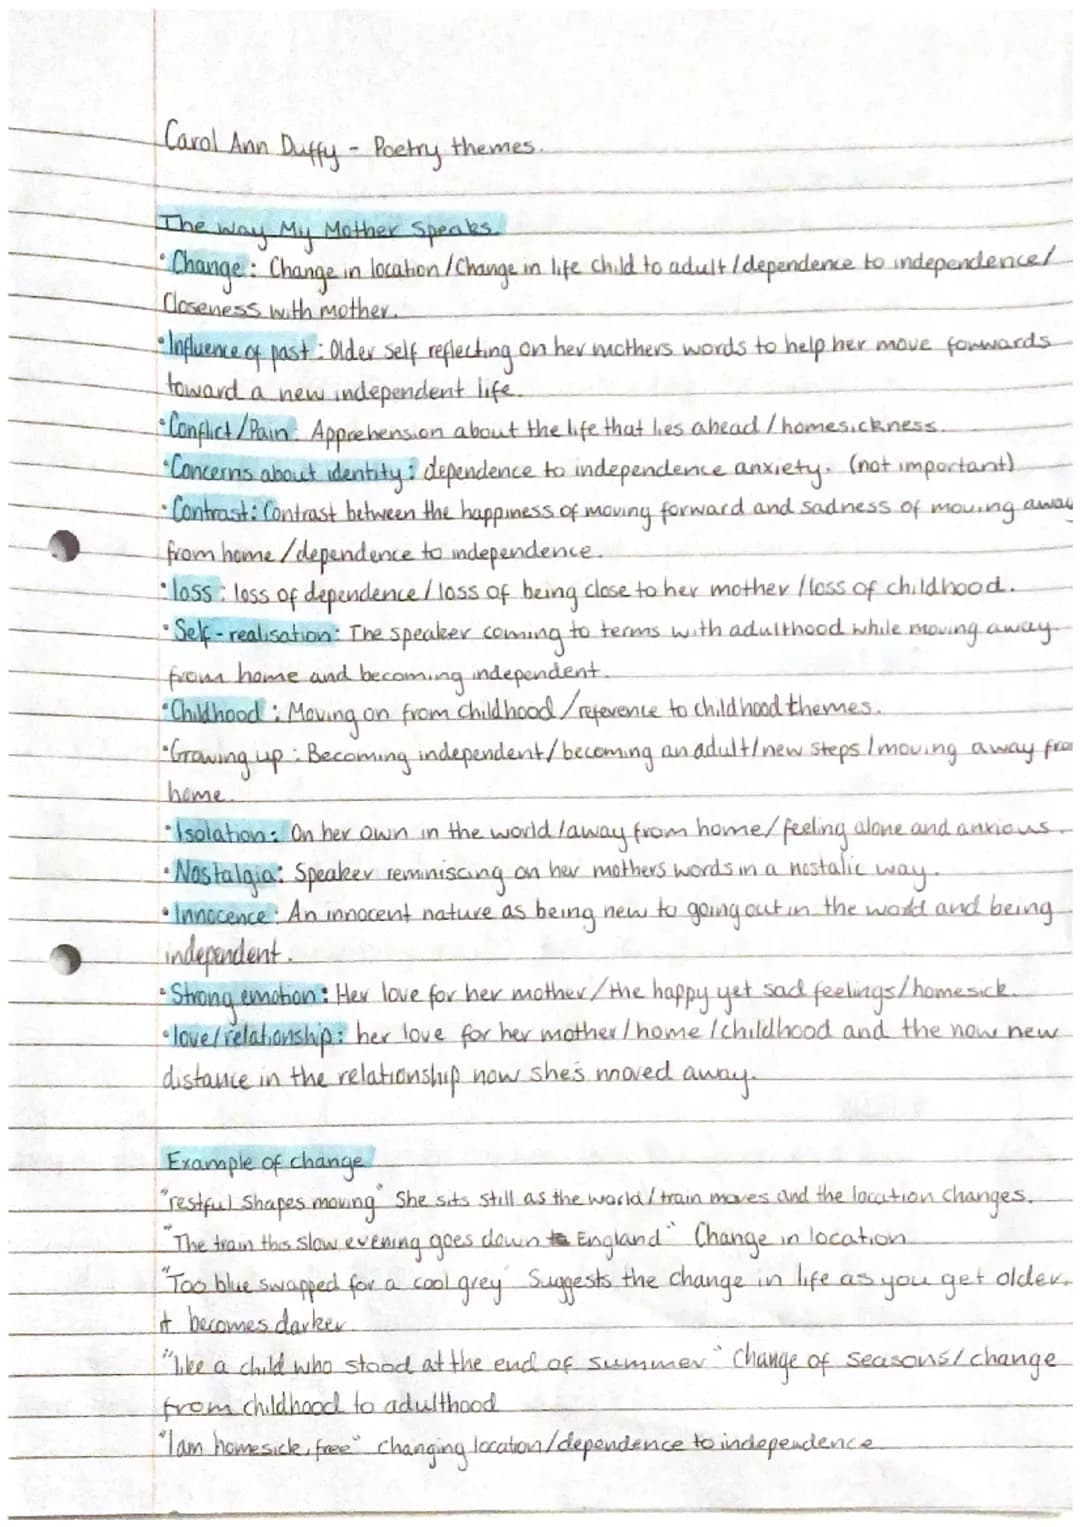 Carol Ann Duffy - Poetry themes.
The Way My Mother Speaks.
• Change : Change in location / Change in life child to adult / dependence to independence /
Closeness with mother.
• Influence of past : Older self reflecting on her mothers words to help her move forwards
toward a new independent life.
• Conflict/Pain: Apprehension about the life that lies ahead / homesickness.
• Concerns about identity : dependence to independence anxiety. (not important)
• Contrast: Contrast between the happiness of moving forward and sadness of moving away
from home / dependence to independence.
• loss : loss of dependence / loss of being close to her mother / loss of childhood.
• Self-realisation: The speaker coming to terms with adulthood while moving away
from home and becoming independent.
• Childhood : Moving on from childhood / reference to childhood themes.
• Growing up : Becoming independent / becoming an adult / new steps / moving away fro
home.
• Isolation: On her own in the world / away from home / feeling alone and anxious.
• Nostalgia: Speaker reminiscing on her mothers words in a nostalic way.
• Innocence: An innocent nature as being new to going out in the world and being
independent.
• Strong emotion: Her love for her mother / the happy yet sad feelings / homesick.
• love/relationship: her love for her mother / home / childhood and the now new
distance in the relationship now she's moved away.
Example of change
"restful shapes moving" She sits still as the world / train moves and the location changes.
"The train this slow evening goes down England" Change in location
"Too blue swapped for a cool grey" Suggests the change in life as you get older.
it becomes darker.
"like a child who stood at the end of summer" Change of seasons / change
from childhood to adulthood
"I am homesick, free" changing location / dependence to independence